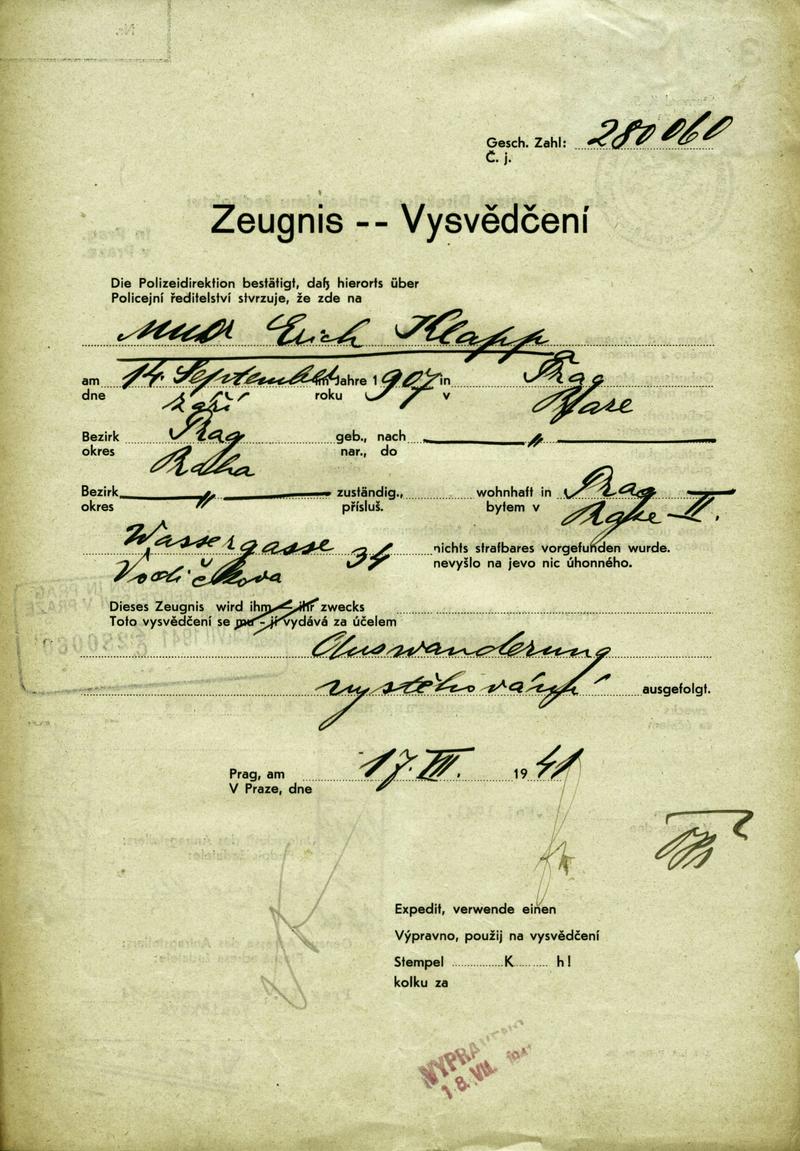 Gesch. Zahl: 280060
Č. j.
Zeugnis -- Vysvědčení
Die Polizeidirektion bestätigt, daß hierorts über
Policejní ředitelství stvrzuje, že zde na
MUDr Erich Klapp
am 14. September im Jahre 1907 in Prag
dne září roku v Praze
Bezirk Prag geb., nach "
okres Praha nar., do
Bezirk " zuständig., wohnhaft in Prag
okres přísluš. bytem v Praze II.
Wassergasse 34 nichts strafbares vorgefunden wurde.
Vodičkova nevyšlo na jevo nic úhonného.
Dieses Zeugnis wird ihm - ihr zwecks
Toto vysvědčení se mu - jí vydává za účelem
Auswanderung
vystěhování ausgefolgt.
Prag, am 17. VII. 1941
V Praze, dne
Expedit, verwende einen
Výpravno, použij na vysvědčení
Stempel K h!
kolku za
VYPRAVENO
18. VII. 1941